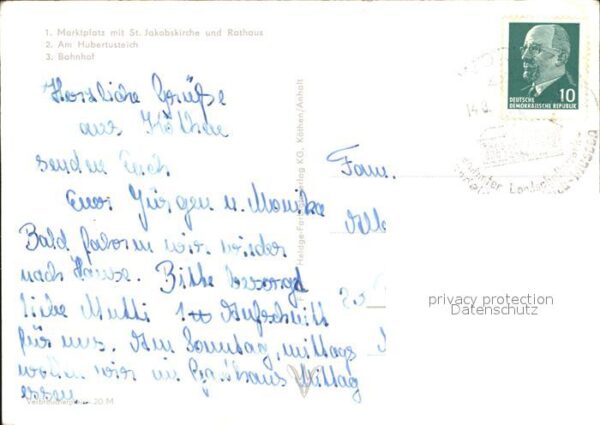 1. Marktplatz mit St. Jakobskirche und Rathaus
2. Am Hubertusteich
3. Bahnhof
DEUTSCHE
DEMOKRATISCHE REPUBLIK 10
Herzliche Grüße
aus Köthen
senden Euch
Euer Jürgen u. Monika
Bald fahren wir wieder
nach Hause. Bitte besorgt
liebe Mutti Aufschnitt
für uns. Am Sonntag, mittags
wollen wir im Gasthaus Mittag
essen.
Verbraucherpreis 20 M
Verlag KG, Köthen/Anhalt
Fam.
privacy protection
Datenschutz